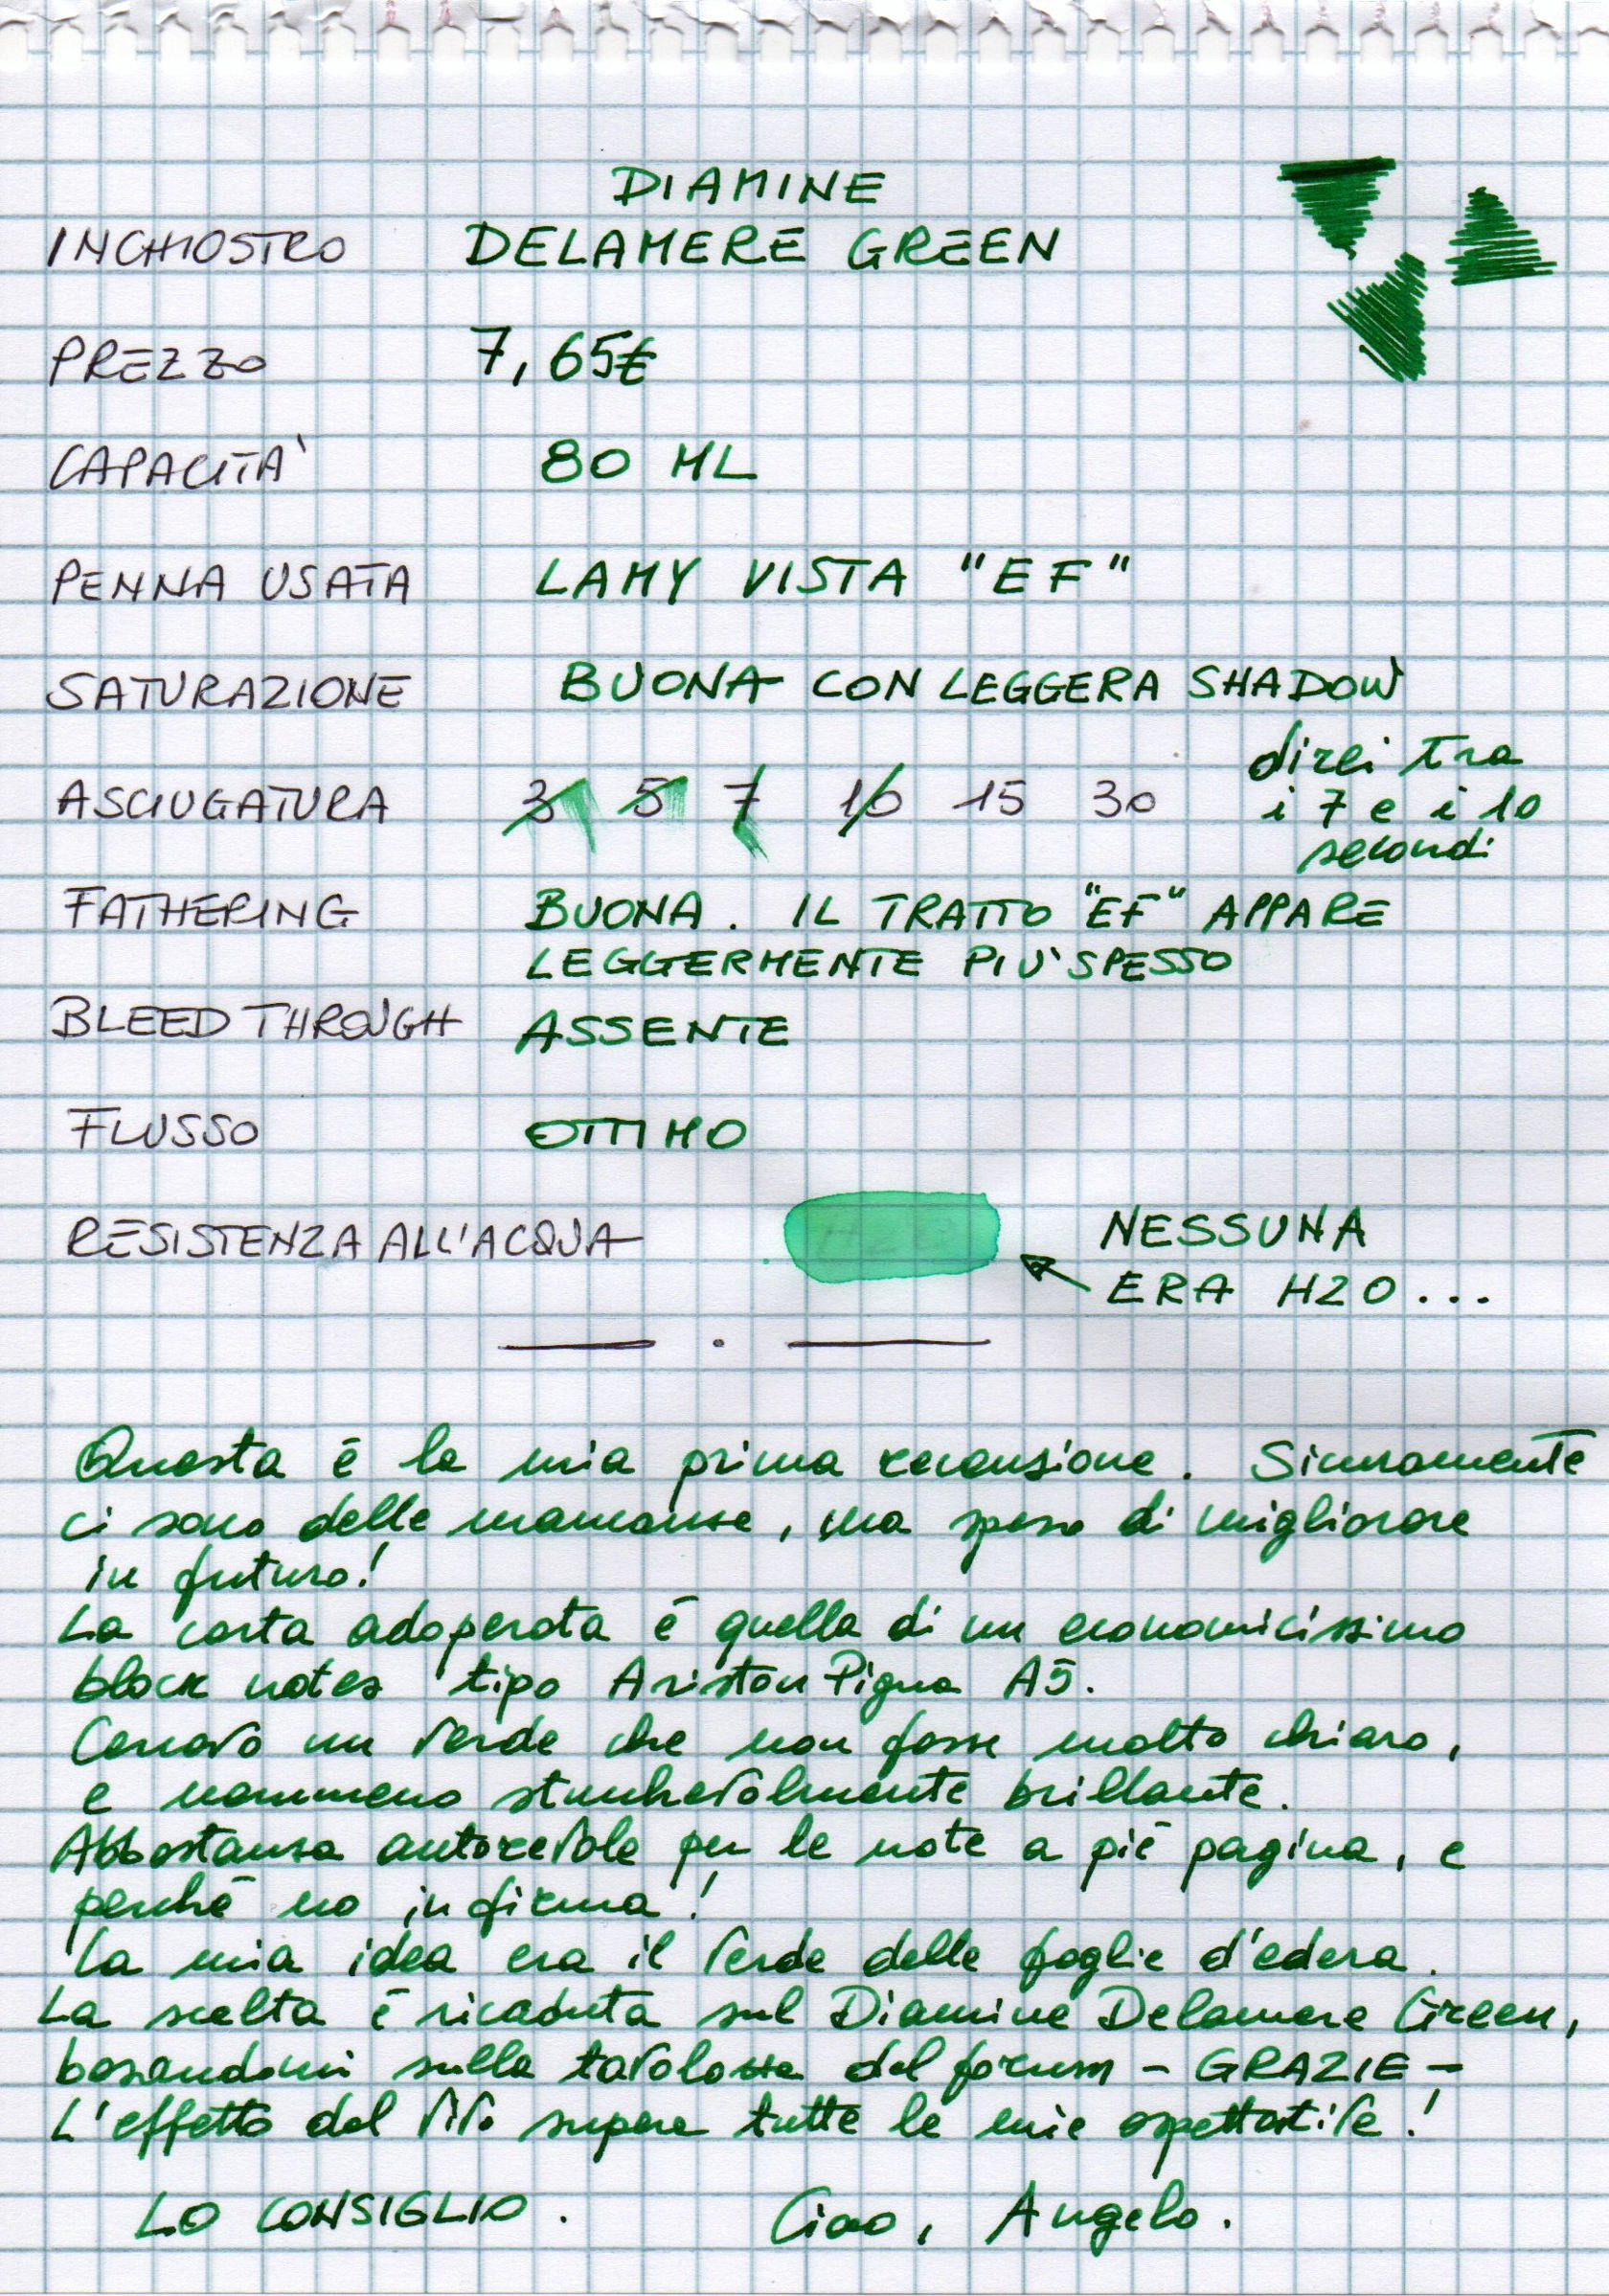 DIAMINE
INCHIOSTRO DELAMERE GREEN
PREZZO 7,65€
CAPACITA' 80 ML
PENNA USATA LAMY VISTA "EF"
SATURAZIONE BUONA CON LEGGERA SHADOW
ASCIUGATURA 3 5 7 10 15 30 direi tra
i 7 e i 10
secondi
FATHERING BUONA. IL TRATTO "EF" APPARE
LEGGERMENTE PIU' SPESSO
BLEED THROUGH ASSENTE
FLUSSO OTTIMO
RESISTENZA ALL'ACQUA H2O NESSUNA
ERA H2O...
Questa è la mia prima recensione. Sicuramente
ci sono delle mancanze, ma spero di migliorare
in futuro!
La carta adoperata è quella di un economicissimo
block notes tipo Ariston Pigna A5.
Cercavo un verde che non fosse molto chiaro,
e nemmeno stucchevolmente brillante.
Abbastanza autorevole per le note a piè pagina, e
perché no in firma!
La mia idea era il verde delle foglie d'edera.
La scelta è ricaduta sul Diamine Delamere Green,
basandomi sulla tavolozza del forum - GRAZIE -
L'effetto dal vivo supera tutte le mie aspettative!
LO CONSIGLIO. Ciao, Angelo.